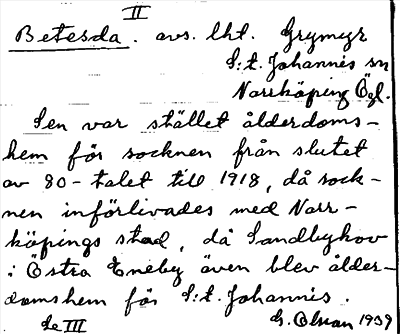 II
Betesda. avs. lht. Grymyr
S:t. Johannis sn
Norrköping Ögl.
Sen var stället ålderdoms-
hem för socknen från slutet
av 80-talet till 1918, då sock-
nen införlivades med Norr-
köpings stad, då Sandbyhov
i Östra Eneby även blev ålder-
domshem för S:t. Johannis.
Se III
G. Olson 1939